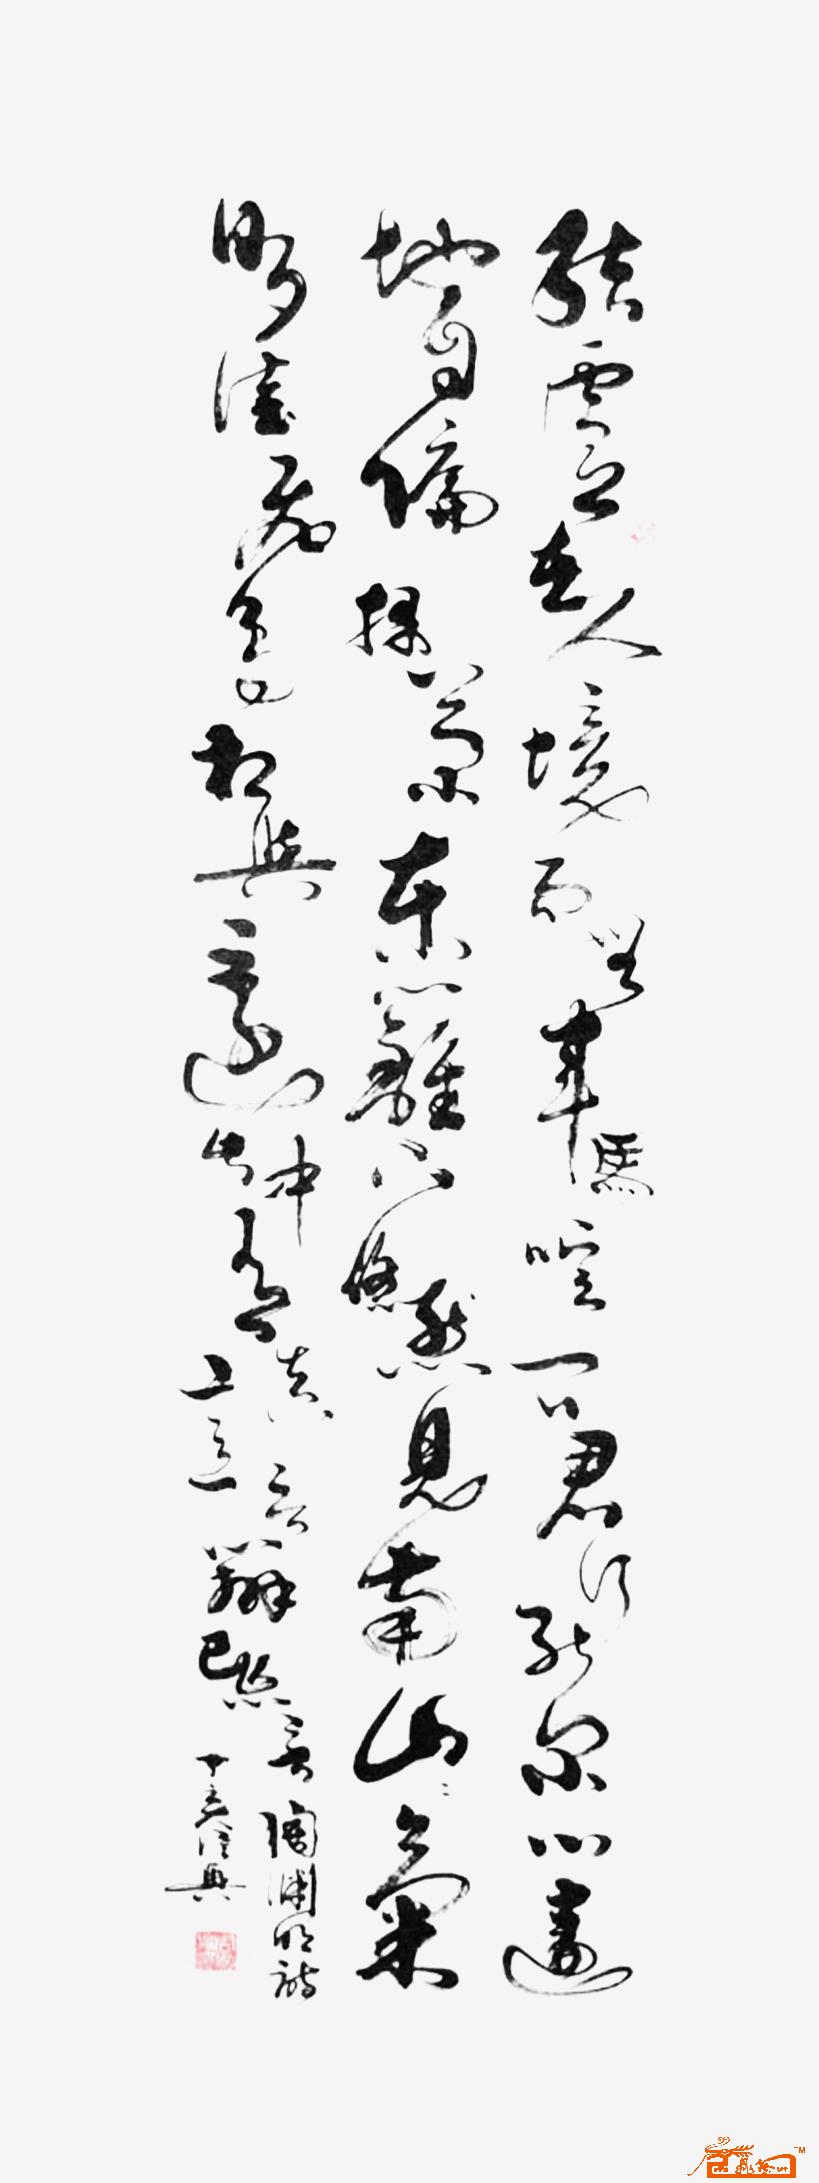 結廬在人境而無車馬喧問君何能爾心遠
地自偏採菊東籬下悠然見南山〻氣
日夕佳飛鳥相與還此中有真意欲辨已忘言
陶淵明詩
丁亥